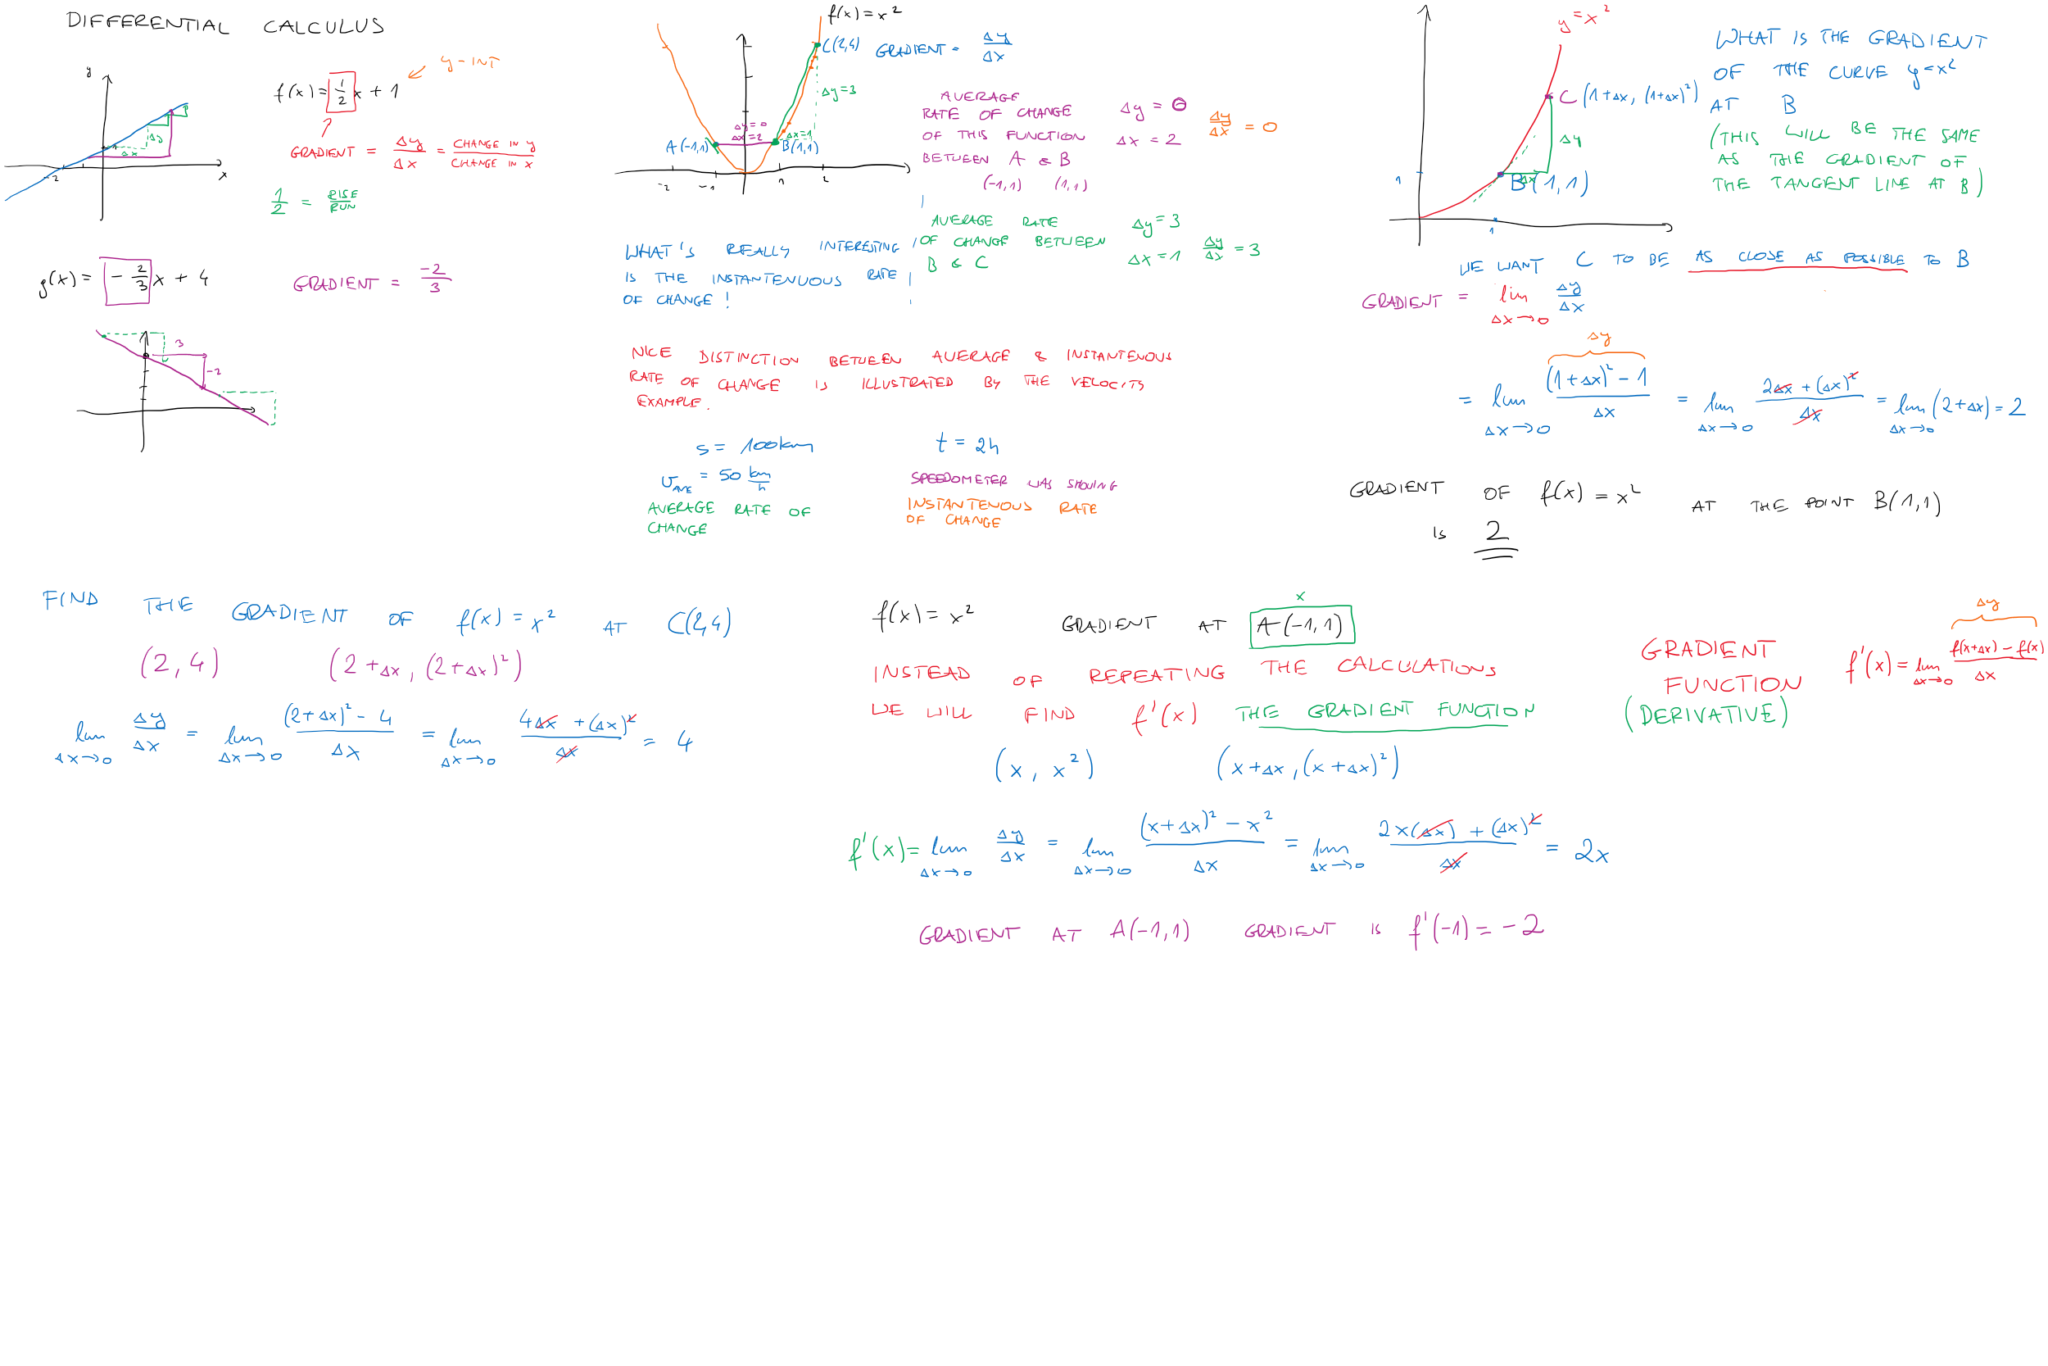 DIFFERENTIAL CALCULUS
y
x
-2
f(x) = 1/2 x + 1
y-INT
GRADIENT = Δy/Δx = CHANGE IN y/CHANGE IN x
1/2 = RISE/RUN
Δx
Δy
g(x) = -2/3 x + 4
GRADIENT = -2/3
3
-2
f(x) = x²
C(2,4)
GRADIENT = Δy/Δx
Δy=3
Δy=0
Δx=2
Δx=1
A(-1,1)
B(1,1)
-2 -1 1 2
AVERAGE
RATE OF CHANGE
OF THIS FUNCTION
BETWEEN A & B
(-1,1) (1,1)
Δy = 0
Δx = 2
Δy/Δx = 0
AVERAGE RATE
OF CHANGE BETWEEN
B & C
Δy = 3
Δx = 1
Δy/Δx = 3
WHAT'S REALLY INTERESTING
IS THE INSTANTENUOUS RATE
OF CHANGE!
NICE DISTINCTION BETWEEN AVERAGE & INSTANTENOUS
RATE OF CHANGE IS ILLUSTRATED BY THE VELOCITY
EXAMPLE.
s = 100km
t = 2h
v AVE = 50 km/h
SPEEDOMETER WAS SHOWING
AVERAGE RATE OF
CHANGE
INSTANTENOUS RATE
OF CHANGE
y = x²
C (1+Δx, (1+Δx)²)
Δy
Δx
B(1,1)
1
1
WHAT IS THE GRADIENT
OF THE CURVE y=x²
AT B
(THIS WILL BE THE SAME
AS THE GRADIENT OF
THE TANGENT LINE AT B)
WE WANT C TO BE AS CLOSE AS POSSIBLE TO B
GRADIENT = lim Δx→0 Δy/Δx
Δy
= lim Δx→0 ((1+Δx)² - 1)/Δx = lim Δx→0 (2Δx + (Δx)²)/Δx = lim Δx→0 (2+Δx) = 2
GRADIENT OF f(x) = x² AT THE POINT B(1,1)
IS 2
FIND THE GRADIENT OF f(x) = x² AT C(2,4)
(2,4) (2+Δx, (2+Δx)²)
lim Δx→0 Δy/Δx = lim Δx→0 ((2+Δx)² - 4)/Δx = lim Δx→0 (4Δx + (Δx)²)/Δx = 4
x
f(x) = x² GRADIENT AT A(-1,1)
INSTEAD OF REPEATING THE CALCULATIONS
WE WILL FIND f'(x) THE GRADIENT FUNCTION
(x, x²) (x+Δx, (x+Δx)²)
f'(x) = lim Δx→0 Δy/Δx = lim Δx→0 ((x+Δx)² - x²)/Δx = lim Δx→0 (2x(Δx) + (Δx)²)/Δx = 2x
GRADIENT AT A(-1,1) GRADIENT IS f'(-1) = -2
GRADIENT
FUNCTION
(DERIVATIVE)
Δy
f'(x) = lim Δx→0 (f(x+Δx) - f(x))/Δx